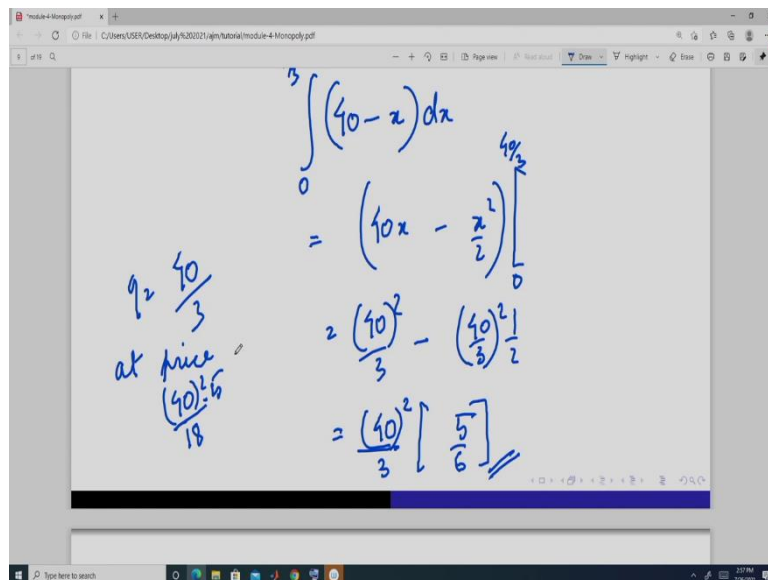 *module-4-Monopoly.pdf
File | C:/Users/USER/Desktop/july%202021/ajm/tutorial/module-4-Monopoly.pdf
of 19
Page view
Read aloud
Draw
Highlight
Erase
3
∫ (40 - x) dx
0
= (40x - x²/2) | 40/3
0
q = 40/3
at price
(40)²·5/18
= (40)²/3 - (40/3)² 1/2
= (40)²/3 [5/6]
Type here to search
2:57 PM